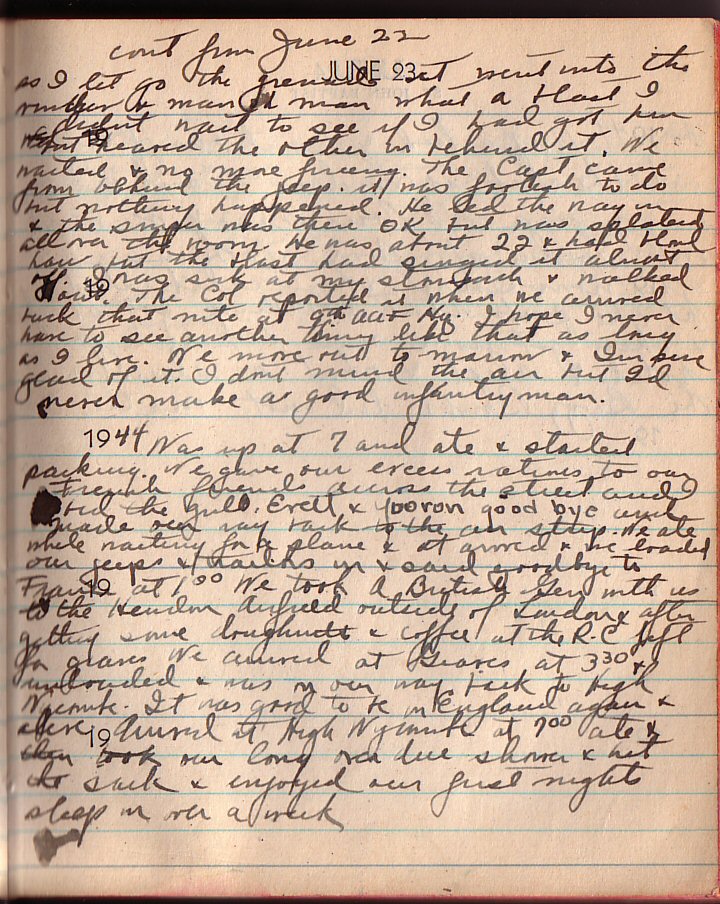 cont from June 22
JUNE 23
as I let go the grenade it went into the
window & man oh man what a blast I
didn't wait to see if I had got him
but heared the other in behind it. We
waited & no more fireing. The Capt came
from behind the jeep. it was foolish to do
but nothing happened. He led the way in
& the sniper was there OK but was splatered
all over the room he was about 22 & had blond
hair but the blast had singed it almost
I was sick at my stomach & walked
19
out. The Col reported it when we arrived
back that nite at 9th AAF Hq. I hope I never
have to see another thing like that as long
as I live. We move out to marrow & Im sure
glad of it. I dont mind the air but Id
never make a good infantry man.
1944 Was up at 7 and ate & started
packing. We gave our excess rations to our
French friends across the street and
bid the girls. Evett & Yooron good bye and
made our way back to the air strip. We ate
while waiting for a plane & it arived & we loaded
our jeeps & in & said goodbye to
France at 1 00 We took A British Gen with us
19
to the Hendon Airfield outside of London & after
getting some doughnuts & coffee at the R.C. left
for graves We arrived at Graves at 3 30 &
unloaded & was on our way back to High
Wycombe. It was good to be in England again &
alive. Arrived at High Wycombe at 7 00 ate &
19
then took our long over due shower & hit
the sack & enjoyed our first nights
sleep in over a week